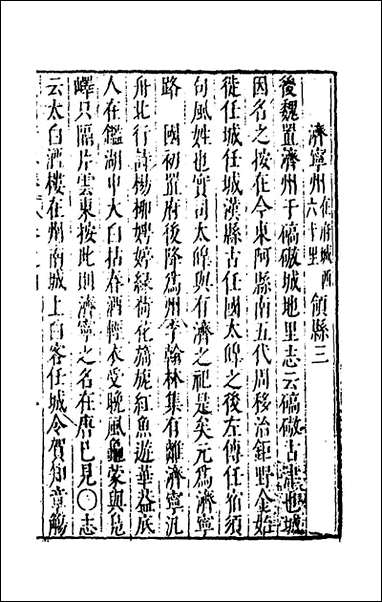 濟寧州在府城西六十里領縣三
後魏置濟州于碻磝城地里志云碻磝古津也城
因名之按在今東阿縣南五代周移治鉅野金始
徙任城任城漢縣古任國太皥之後左傳任宿須
句風姓也實司太皥與有濟之祀是矣元爲濟寧
路 國初置府後降爲州李翰林集有離濟寧汎
舟北行詩楊柳娉婷綠荷花蕩旎紅魚遊華益底
人在鑑湖中大白拈春酒輕衣受晚風龜蒙與鳧
嶧只隔片雲東按此則濟寧之名在唐巳見○志
云太白酒樓在州南城上白客任城令賀知章觴